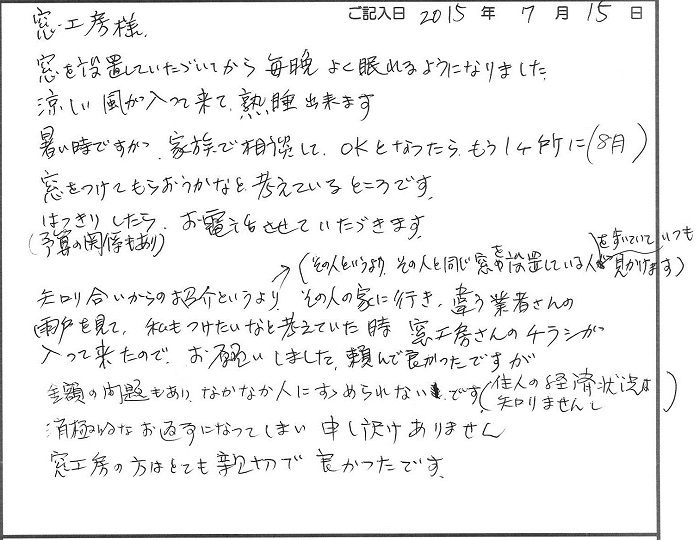 ご記入日 2015 年 7 月 15 日
窓工房様
窓を設置していただいてから 毎晩 よく眠れるようになりました
涼しい風が入って来て、熟睡出来ます
暑い時ですが、家族で相談して、OKとなったら、もう1ヶ所に(8月)
窓をつけてもらおうかなと 考えているところです。
はっきりしたら、お電話させていただきます。
(予算の関係もあり)
(その人というより、その人と同じ窓を設置している人 いつも
見かけます)
知り合いからのお紹介というより、その人の家に行き、違う業者さんの
雨戸を見て、私もつけたいなと考えていた時 窓工房さんのチラシが
入って来たので、お願いしました。頼んで良かったですが
金額の問題もあり、なかなか人にすすめられないです(住人の経済状況は
知りませんし)
消極的なお返事になってしまい 申し訳ありません
窓工房の方はとても親切で 良かったです。